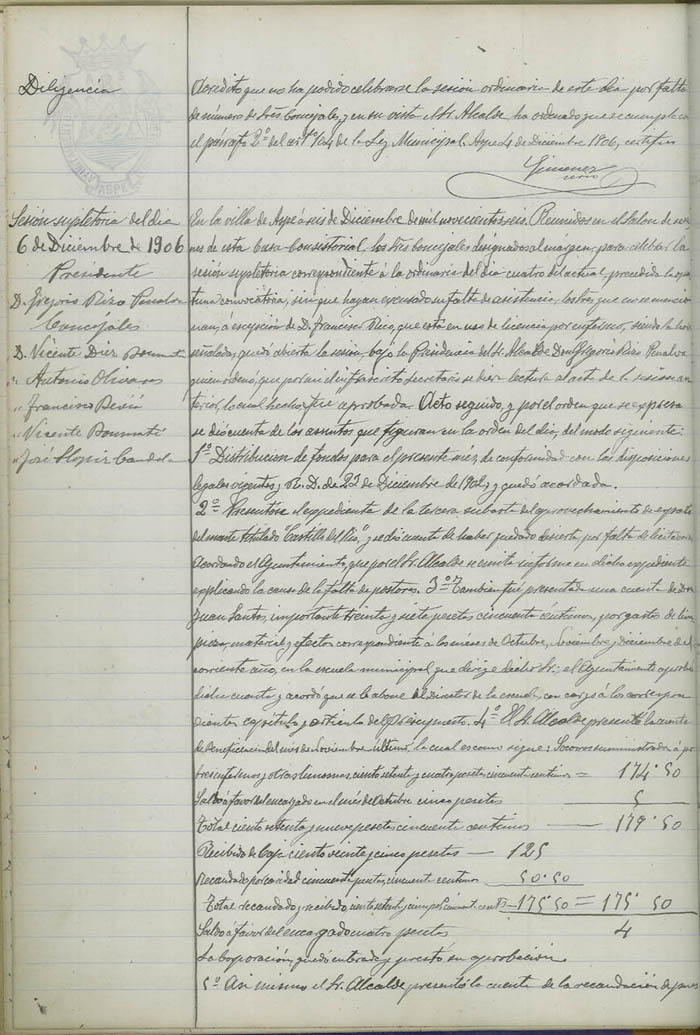 Diligencia
Acredito que no ha podido celebrarse la sesión ordinaria de este dia por falta
de número de Sres Concejales, y en su vista el Sr. Alcalde ha ordenado que se cumpla con
el párrafo 2º del artº 104 de la Ley Municipal. Aspe 4 de Diciembre 1906, certifico
Gimenez
Sesión supletoria del dia
6 de Diciembre de 1906
Presidente
D. Gregorio Rizo Penalva
Concejales
D. Vicente Diez Bonmati
" Antonio Olivares
" Francisco
" Vicente Bonmatí
" José Candela
En la villa de Aspe á seis de Diciembre de mil novecientos seis. Reunidos en el Salon de sesio-
nes de esta Casa Consistorial, los Sres Concejales designados al márgen, para celebrar la
sesión supletoria correspondiente á la ordinaria del dia cuatro del actual, precedida la opor-
tuna convocatoria, sin que hayan excusado su falta de asistencia, los Sres que no se mencio-
nan, á excepción de D. Francisco Rico, que está en uso de licencia por enfermo, siendo la hora
señalada, quedó abierta la sesión, bajo la Presidencia del Sr. Alcalde Don Gregorio Rizo Penalva
quien ordenó, que por mi el infrascrito secretario se diera lectura al acta de la sesión an-
terior, lo cual hecho, fue aprobada. Acto seguido, y por el orden que se expresa
se dió cuenta de los asuntos que figuran en la orden del dia, del modo siguiente:
1º Distribucion de fondos para el presente mes, de conformidad con las disposiciones
legales vigentes y R. D. de 23 de Diciembre de 1902, y quedó acordada.
2º Presentóse el expediente de la tercera subasta del aprovechamiento de esparto
del monte titulado "Castillo del Rio", y se dió cuenta de haber quedado desierta por falta de licitadores
Acordando el Ayuntamiento, que por el Sr. Alcalde se emita informe en dicho expediente
explicando la causa de la falta de postores. 3º Tambien fué presentada una cuenta de Don
Juan Santos, importante treinta y siete pesetas cincuenta céntimos, por gastos de lim-
pieza, material y efectos correspondiente á los meses de Octubre, Noviembre y Diciembre del
corriente año, en la escuela municipal que dirige dicho Sr.; el Ayuntamiento aprobó
dicha cuenta y acordó que se le abone al Director de la escuela, con cargo á los correspon-
dientes capítulo y artículo del Presupuesto. 4º El Sr. Alcalde presentó la cuenta
de Beneficencia del mes de Noviembre último, la cual es como sigue: Socorros suministrados á po-
bres enfermos y otras limosnas, ciento setenta y cuatro pesetas cincuenta centimos = 174'50
Saldo á favor del encargado en el mes de Octubre cinco pesetas 5
Total ciento setenta y nueve pesetas cincuenta centimos — 179'50
Recibido de Caja ciento veinte y cinco pesetas — 125
Recaudado por caridad cincuenta pesetas, cincuenta centimos 50'50
Total recaudado y recibido, ciento setenta y cinco pts. cincuenta cents — 175'50 = 175'50
Saldo á favor del encargado cuatro pesetas 4
La Corporación quedó enterada y prestó su aprobación.
5º Asi mismo el Sr. Alcalde presentó la cuenta de la recaudación de